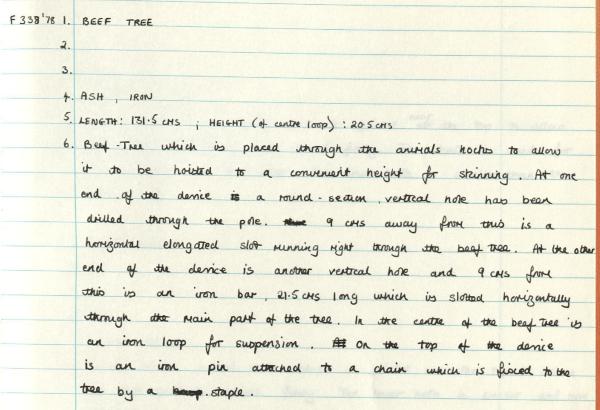 F338'78 1. BEEF TREE
2.
3.
4. ASH, IRON
5. LENGTH: 131.5 CMS ; HEIGHT (of centre loop) : 20.5 CMS
6. Beef-Tree which is placed through the animals hocks to allow
it to be hoisted to a convenient height for skinning. At one
end of the device is a round-section, vertical hole has been
drilled through the pole. 9 CMS away from this is a
horizontal elongated slot running right through the beef tree. At the other
end of the device is another vertical hole and 9 CMS from
this is an iron bar, 21.5 CMS long which is slotted horizontally
through the main part of the tree. In the centre of the beef tree is
an iron loop for suspension. On the top of the device
is an iron pin attached to a chain which is fixed to the
tree by a staple.